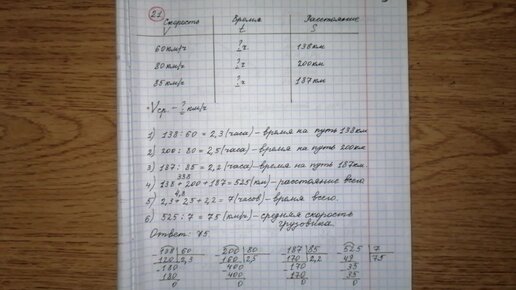 21 Скорость Время Расстояние
V t S
60 км/ч ? ч 138 км
80 км/ч ? ч 200 км
85 км/ч ? ч 187 км
Vср. - ? км/ч
1) 138 : 60 = 2,3 (часа) - время на путь 138 км
2) 200 : 80 = 2,5 (часа) - время на путь 200 км
3) 187 : 85 = 2,2 (часа) - время на путь 187 км.
338
4) 138 + 200 + 187 = 525 (км) - расстояние всего
4,8
5) 2,3 + 2,5 + 2,2 = 7 (часов) - время всего.
6) 525 : 7 = 75 (км/ч) - средняя скорость
грузовика.
Ответ: 75.
138 60 200 80 187 85 525 7
120 2,3 160 2,5 170 2,2 49 75
180 400 170 35
180 400 170 35
0 0 0 0